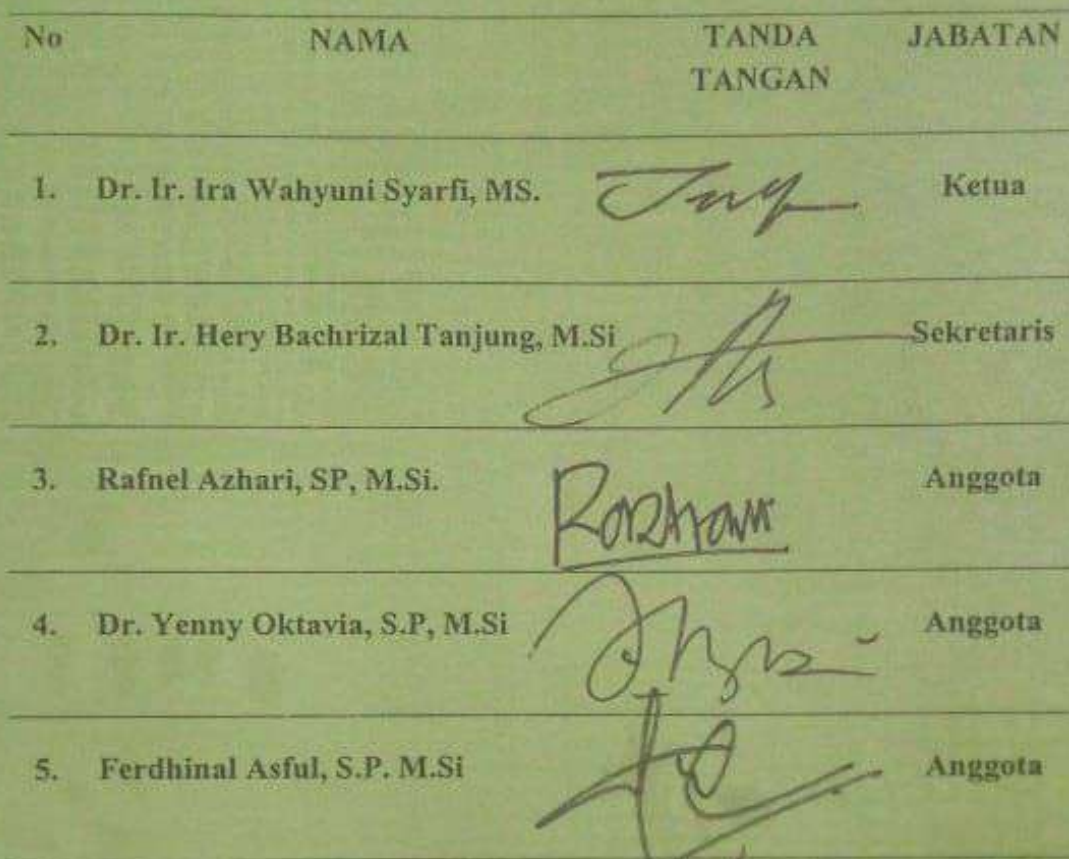 No NAMA TANDA TANGAN JABATAN
1. Dr. Ir. Ira Wahyuni Syarfi, MS. Ketua
2. Dr. Ir. Hery Bachrizal Tanjung, M.Si Sekretaris
3. Rafnel Azhari, SP, M.Si. Anggota
4. Dr. Yenny Oktavia, S.P, M.Si Anggota
5. Ferdhinal Asful, S.P. M.Si Anggota